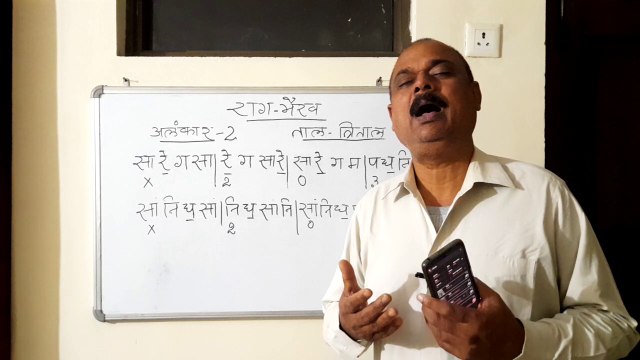 राग-भैरव
अलंकार-2 ताल-त्रिताल
सा रे॒ ग सा | रे॒ ग सा रे॒ | सा रे॒ ग म | प ध॒ नि
x 2 0 3
सां नि ध॒ सा | नि ध॒ सा नि | सां नि ध॒
x 2 0